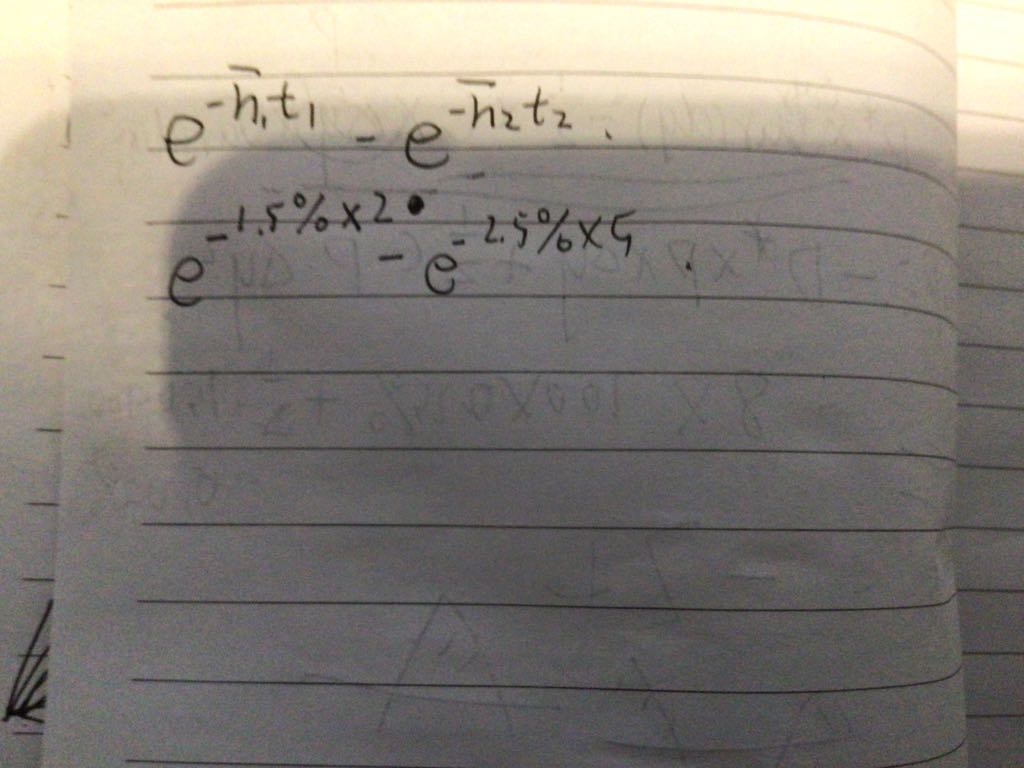 e^{-h̄₁t₁} - e^{-h̄₂t₂}.
e^{-1.5%×2} - e^{-2.5%×5}.